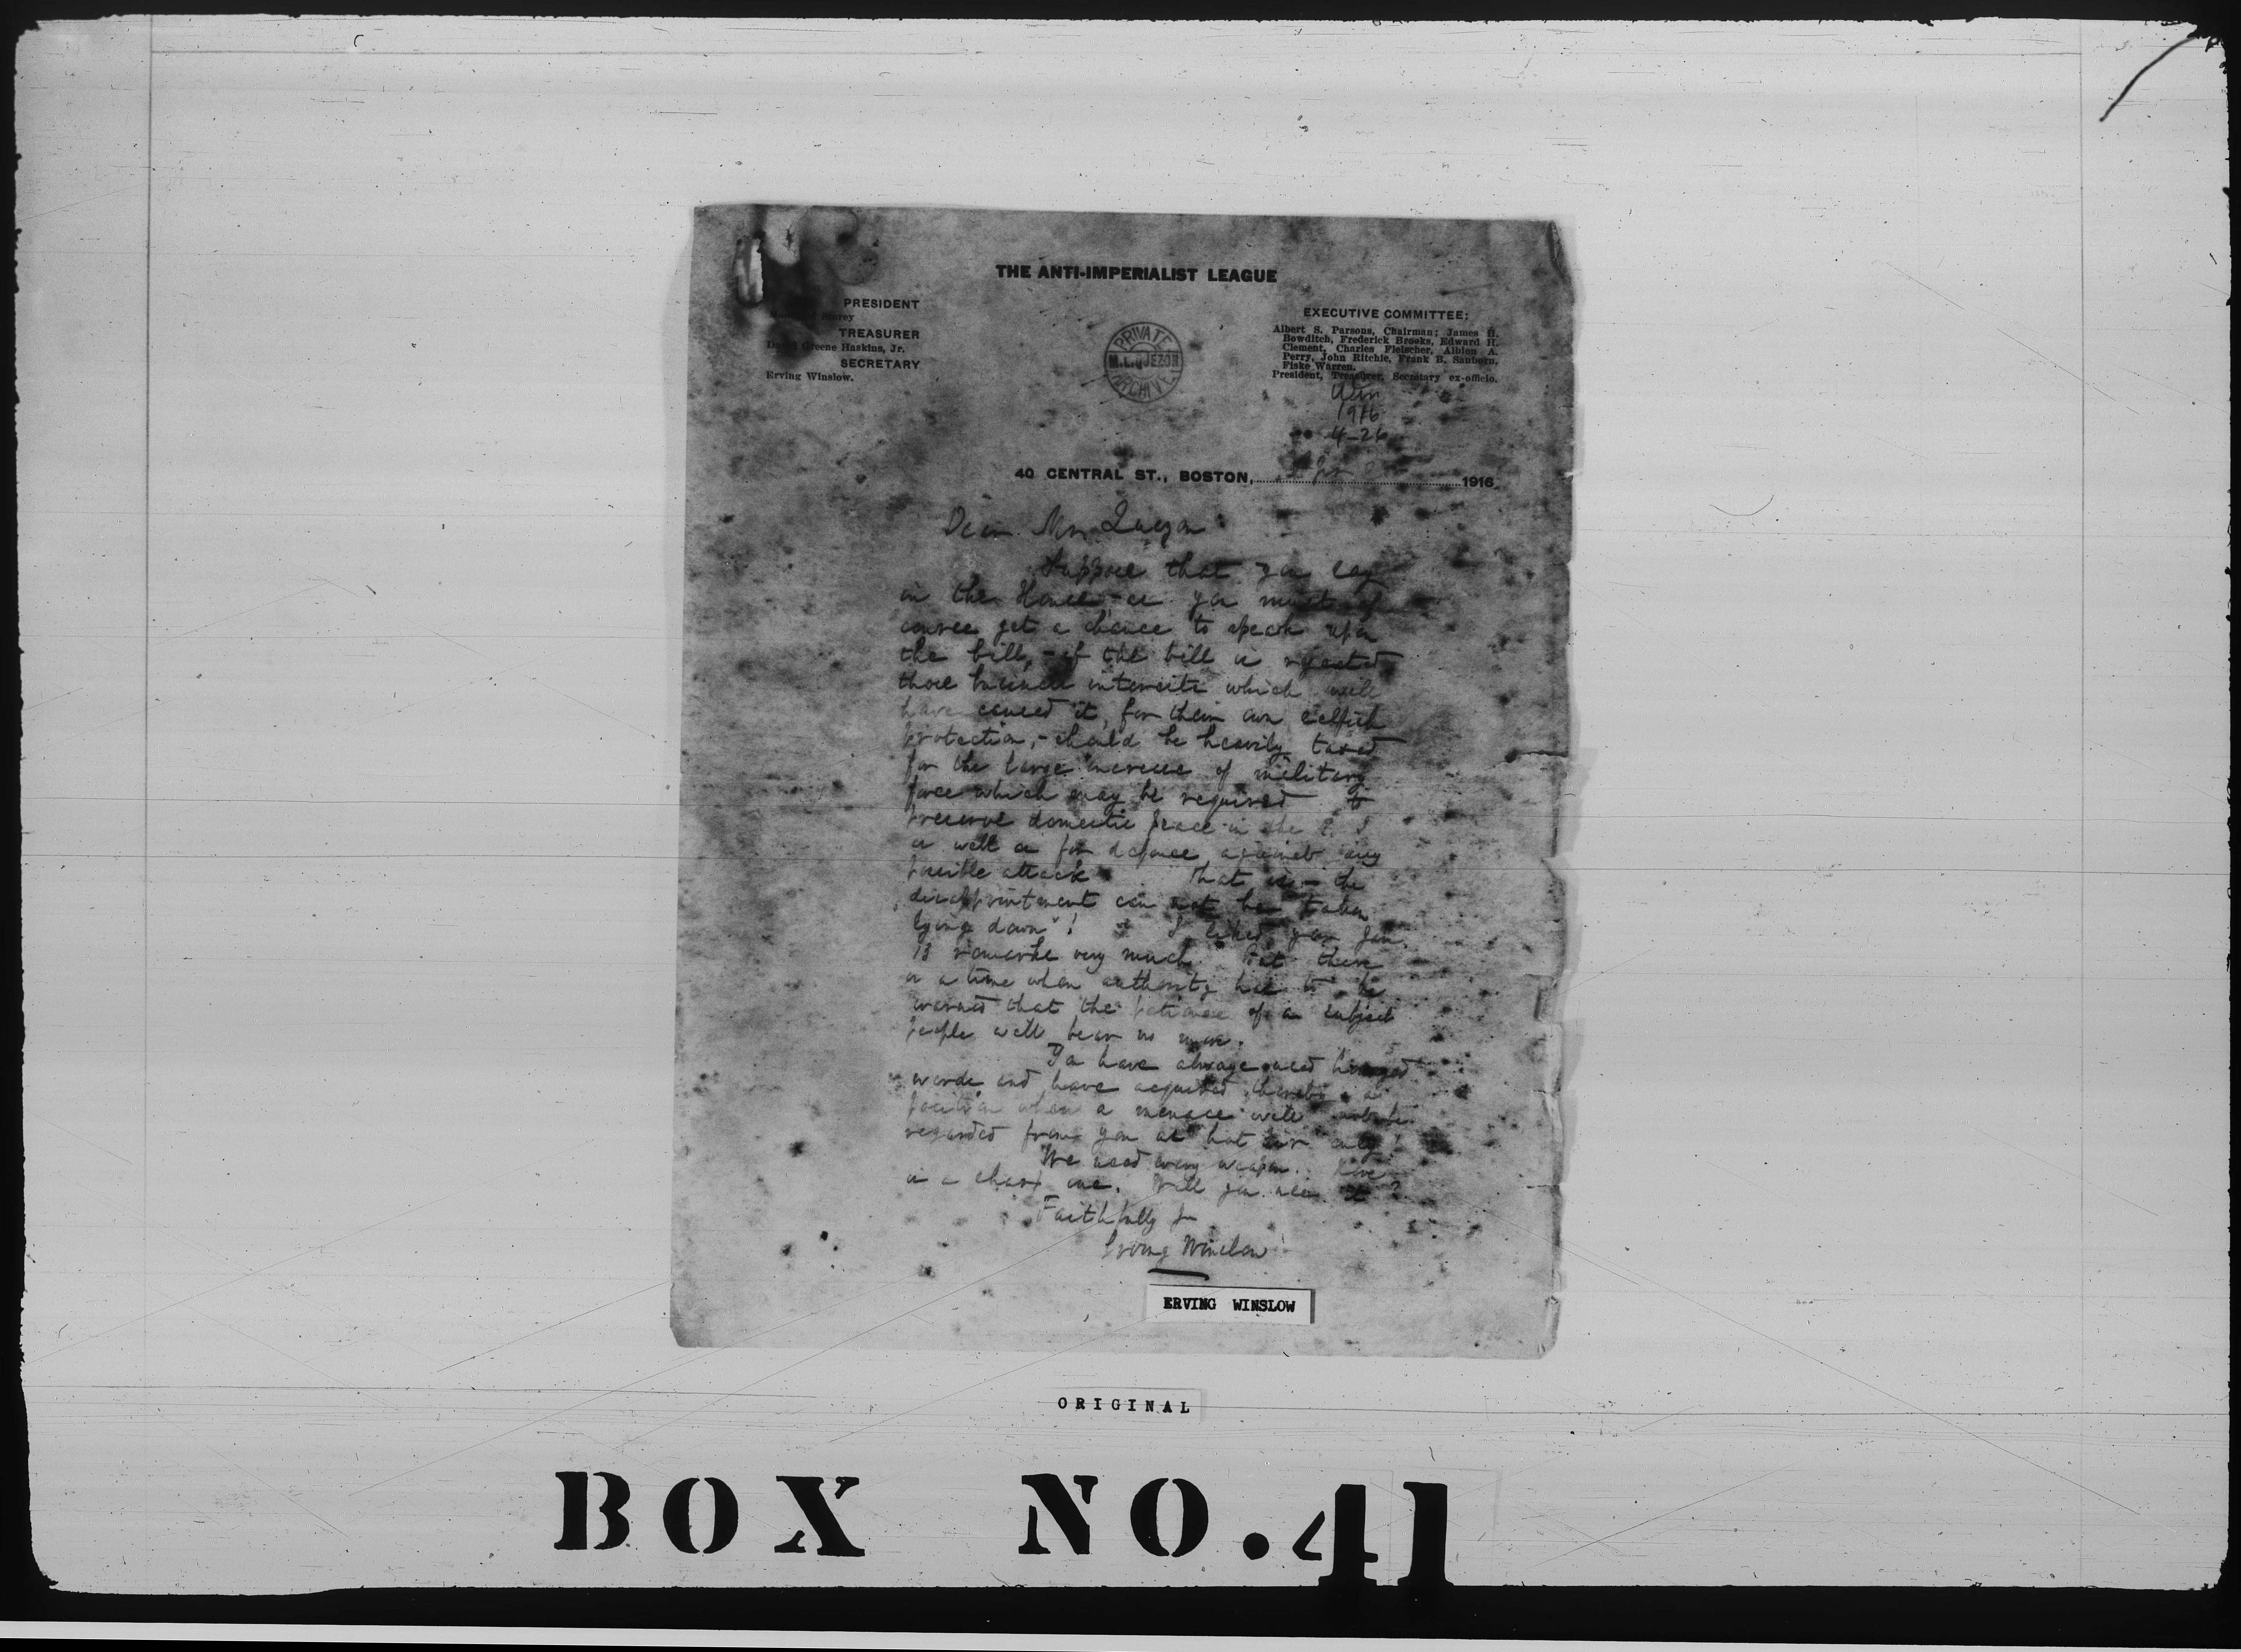 THE ANTI-IMPERIALIST LEAGUE
PRESIDENT
TREASURER
Greene Haskins, Jr.
SECRETARY
Erving Winslow.
PRIVATE
M.L.QUEZON
ARCHIVE
EXECUTIVE COMMITTEE:
Albert S. Parsons, Chairman; James H.
Bowditch, Frederick Brooks, Edward H.
Clement, Charles Fleischer, Albion A.
Perry, John Ritchie, Frank B. Sanborn,
Fiske Warren.
President, Treasurer, Secretary ex-officio.
1916
4-26
40 CENTRAL ST., BOSTON, 1916
Dear Mr. Quezon
Suppose that you say
in the House, as you must of
course get a chance to speak upon
the bill, - if the bill is rejected
those business interests which will
have caused it, for their own selfish
protection, - should be heavily taxed
for the large increase of military
force which may be required to
preserve domestic peace in the P. I
as well as for defence against any
possible attack. That is - the
disappointment can not be "taken
lying down"! I liked your Jan.
13 remarks very much. But there
is a time when authority has to be
warned that the patience of a subject
people will bear no more.
You have always used
words and have acquired thereby a
position when a menace will not be
regarded from you as hot air only!
We need every weapon.
is a sharp one. Will you use it?
Faithfully yrs
Erving Winslow
ERVING WINSLOW
ORIGINAL
BOX NO. 41